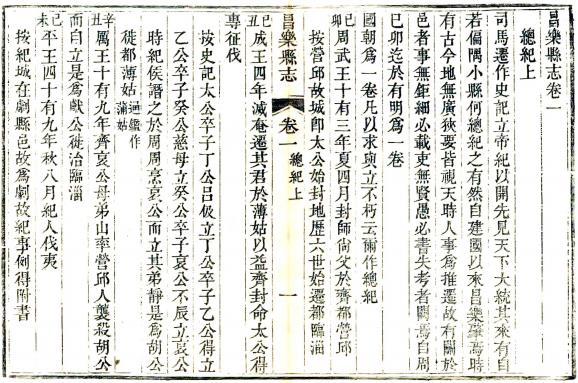 昌樂縣志卷一
總紀上
司馬遷作史記立帝紀以開先見天下大統其來有自
若偏隅小縣何總紀之有然自建國以來昌樂肇焉時
有古今地無廣狹要皆視天時人事為推遷故有關於
邑者事無鉅細必載吏無賢愚必書失考者闕焉自周
己卯迄於有明為一卷
國朝為一卷凡以求與立不朽云爾作總紀
己卯周武王十有三年夏四月封師尚父於齊都營邱
按營邱故城即太公始封地歷六世始遷都臨淄
昌樂縣志
卷一
總紀上
一
己丑成王四年滅奄遷其君於薄姑以益齊封命太公得
專征伐
按史記太公卒子丁公呂伋立丁公卒子乙公得立
乙公卒子癸公慈母立癸公卒子哀公不辰立哀公
時紀侯譖之於周周烹哀公而立其弟靜是為胡公
徙都薄姑通鑑作蒲姑
辛丑厲王十有九年齊哀公母弟山率營邱人襲殺胡公
而自立是為獻公徙治臨淄
己未平王四十有九年秋八月紀人伐夷
按紀城在劇縣邑故為劇故紀事例得附書